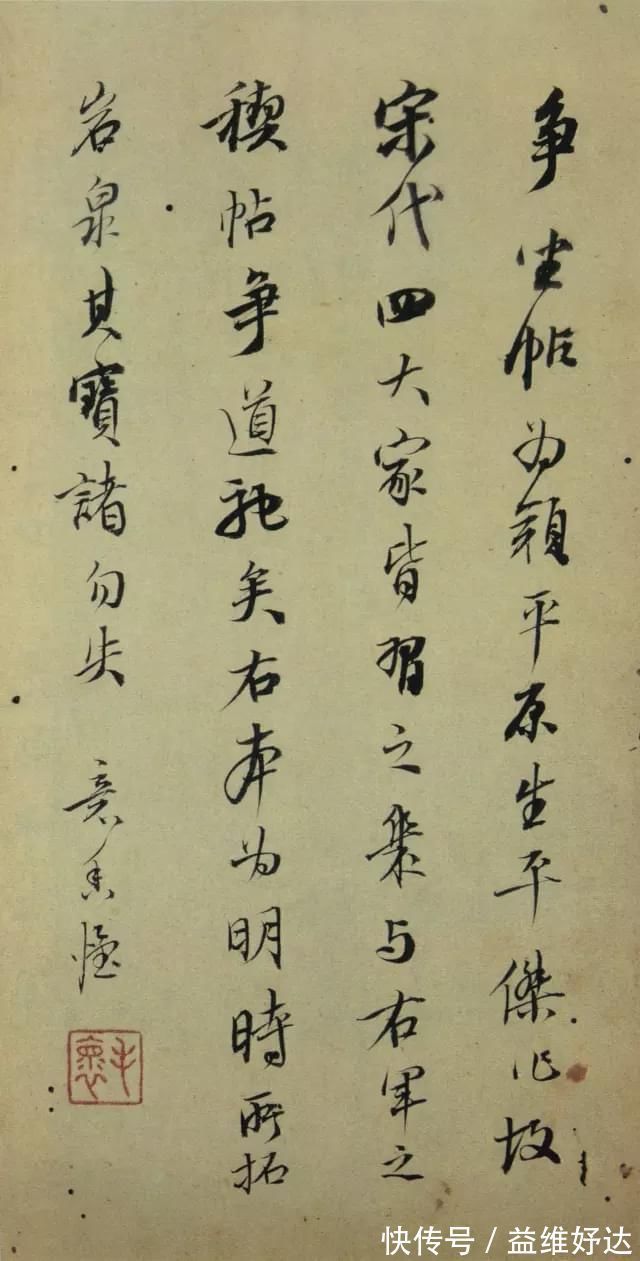 争坐帖为顔平原生平傑作故
宋代四大家皆習之幾与右軍之
稧帖争道馳矣右本为明時所拓
岩泉其寶諸勿失
快传号 / 益维妤达